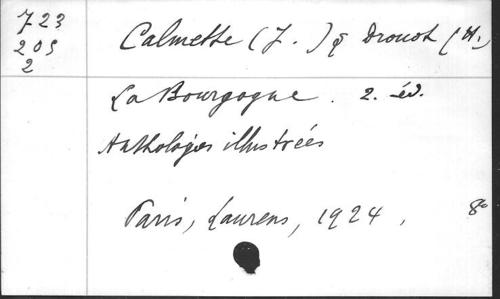 723
205
2
Calmette (J.) & Drouot (H.)
La Bourgogne. 2. éd.
Anthologies illustrées
Paris, Laurens, 1924, 8º